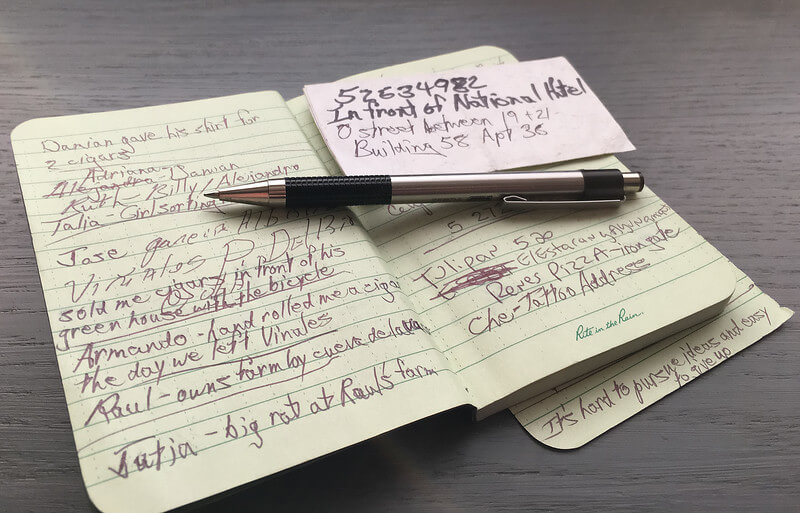 Damian gave his shirt for
2 cigars
Adriana-
Alejandro Damian
Ruth- Billy/Alejandro
Talia- Girl sorting
Jose garcia
Viñales P. Del
sold me cigars in front of his
green house with the bicycle
Armando - hand rolled me a cigar
the day we left Vinales
Raul - owns farm by cueva de la
Jutia - big rat at Raul's farm
52634982
In front of National Hotel
O street between 19 + 21
Building 58 Apt 36
5 212
Tulipan 520
El Estacan
Reyes Pizza-
Che-Tattoo Address
Rite in the Rain
It's hard to pursue ideas and easy
to give up